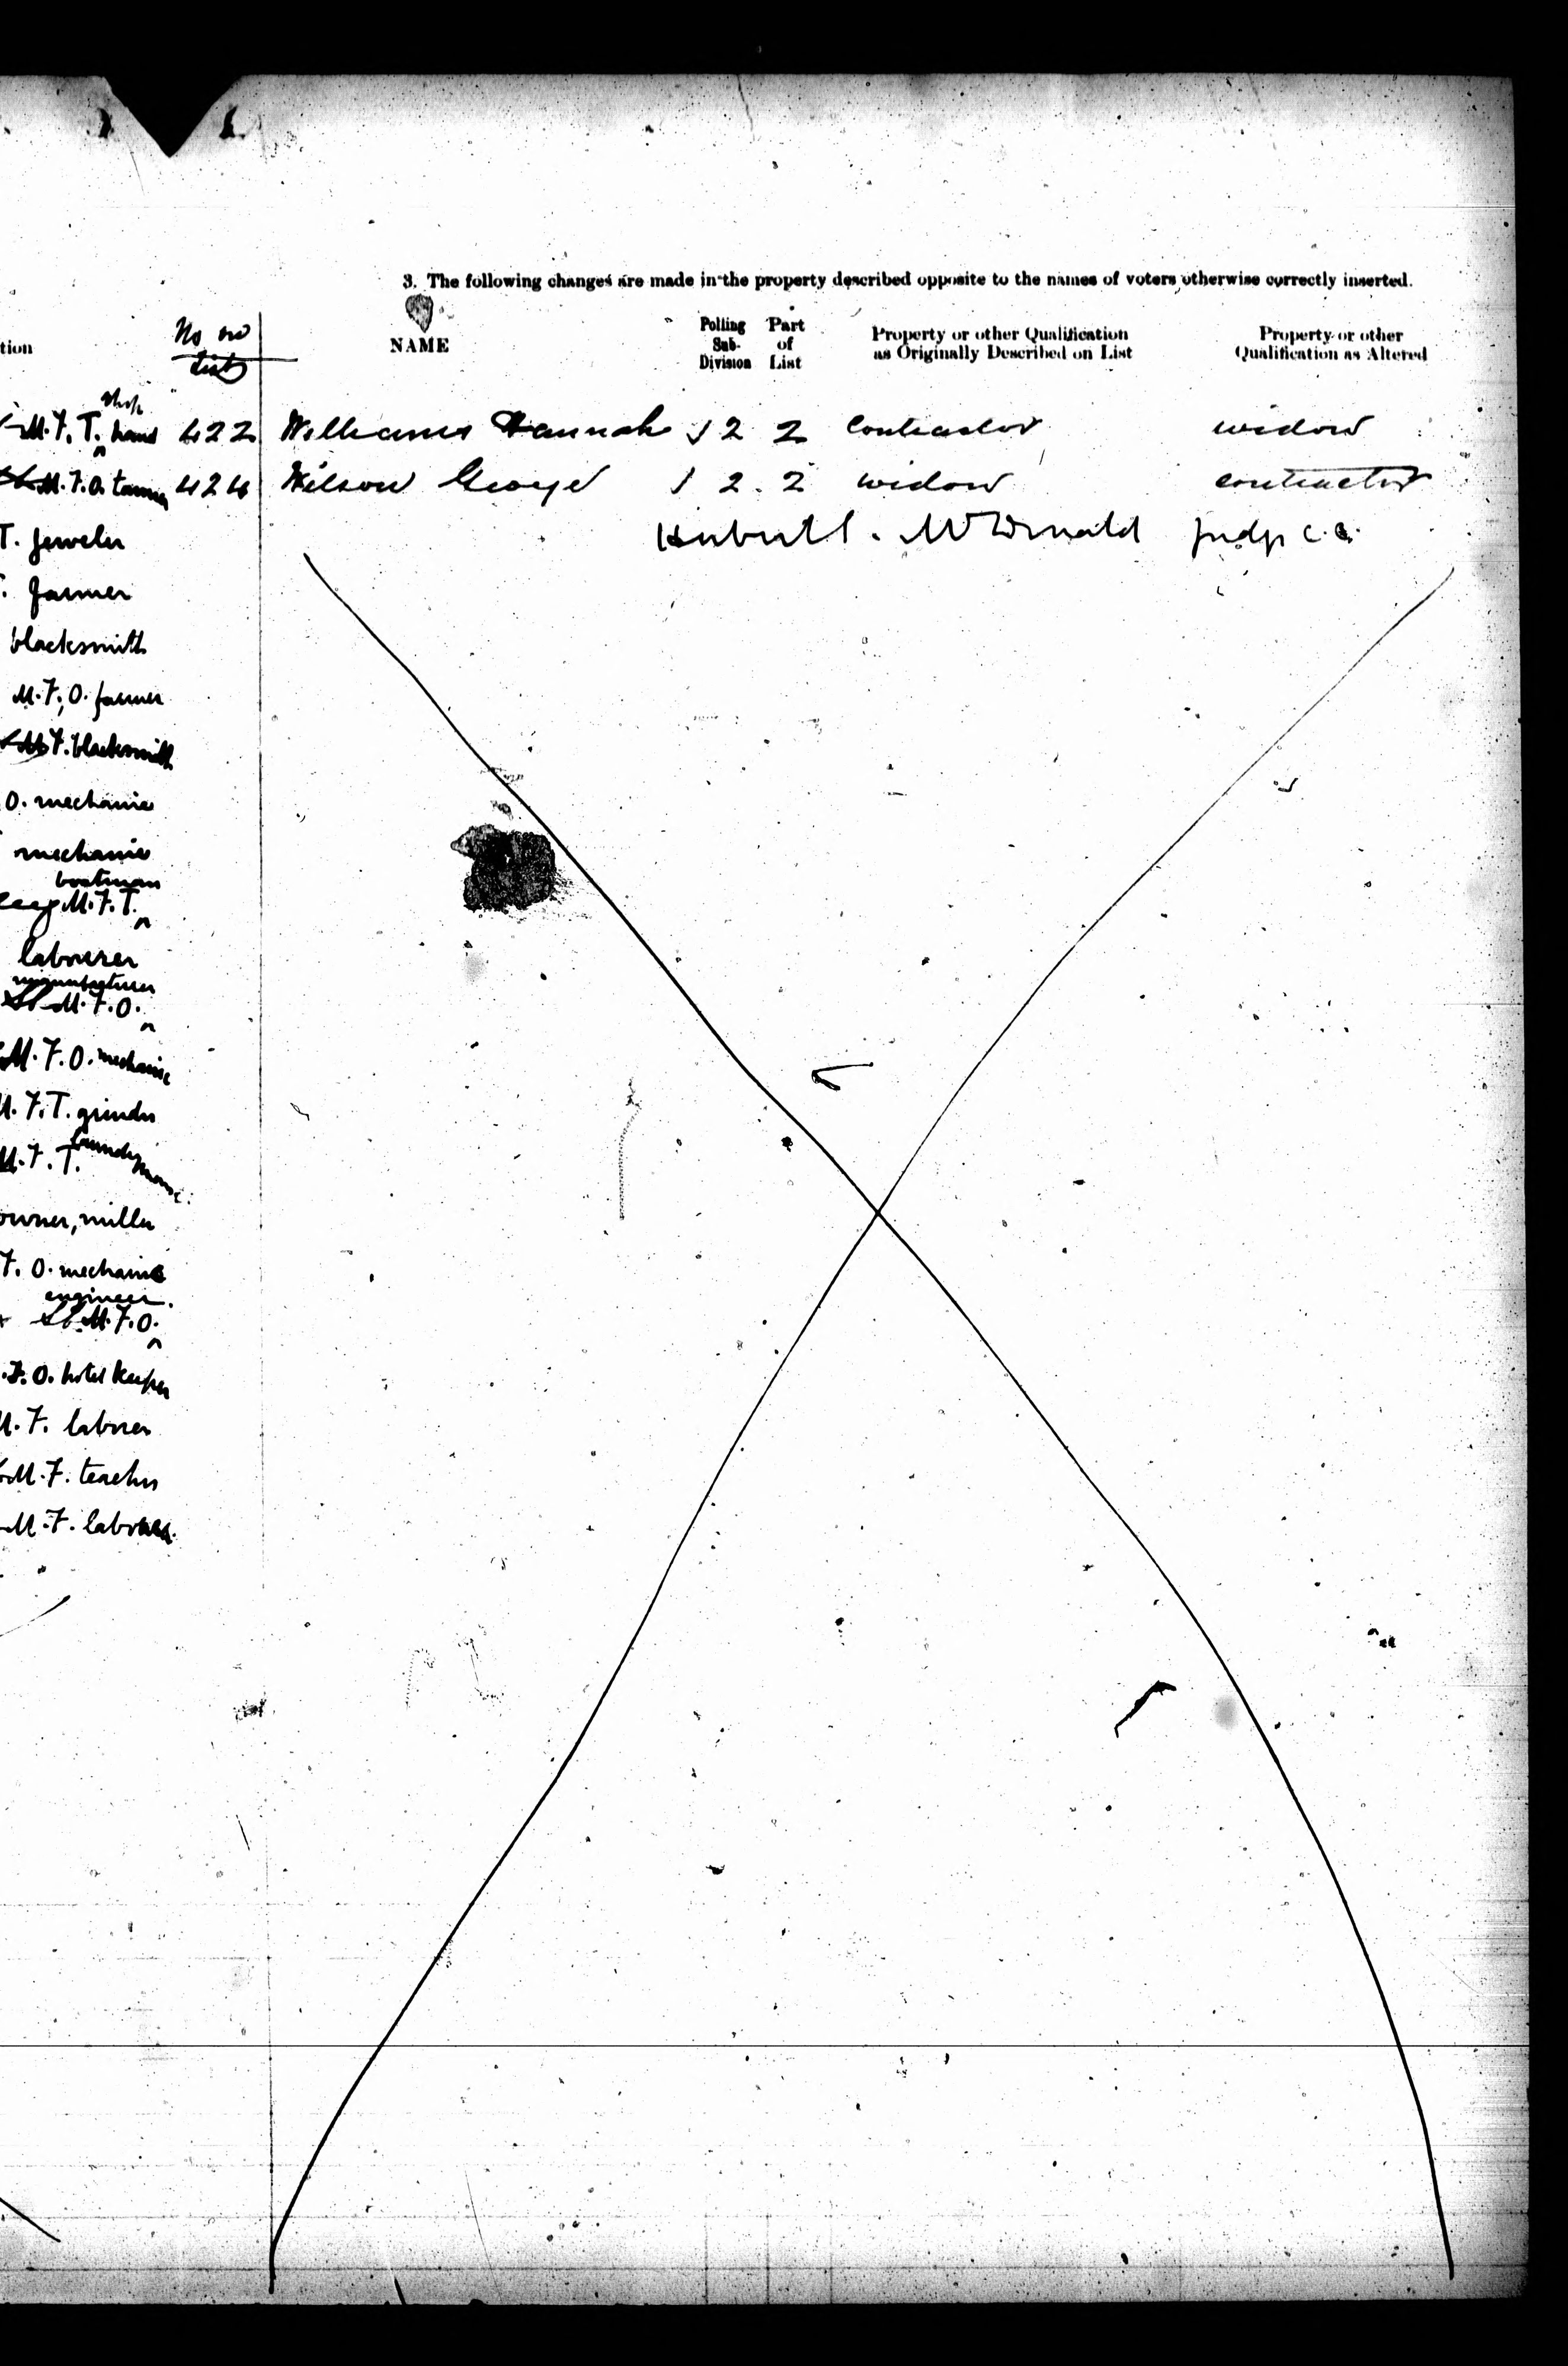 3. The following changes are made in the property described opposite to the names of voters otherwise correctly inserted.
tion No. on list NAME Polling Sub-Division Part of List Property or other Qualification as Originally Described on List Property or other Qualification as Altered
shop
M. F. T. hand 422 Williams Hannah 2 2 contractor widow
M. F. O. tanner 424 Wilson George 2 2 widow contractor
McDonald Judge C.C.
T. jeweler
T. farmer
blacksmith
M. F. O. farmer
M. F. blacksmith
O. mechanic
mechanic
boatman
M. F. T.
laborer
manufacturer
M. F. O.
M. F. O. mechanic
M. F. T. grinder
M. F. T. foundryman
owner, miller
F. O. mechanic
engineer
M. F. O.
F. O. hotel keeper
M. F. laborer
M. F. teacher
M. F. laborer